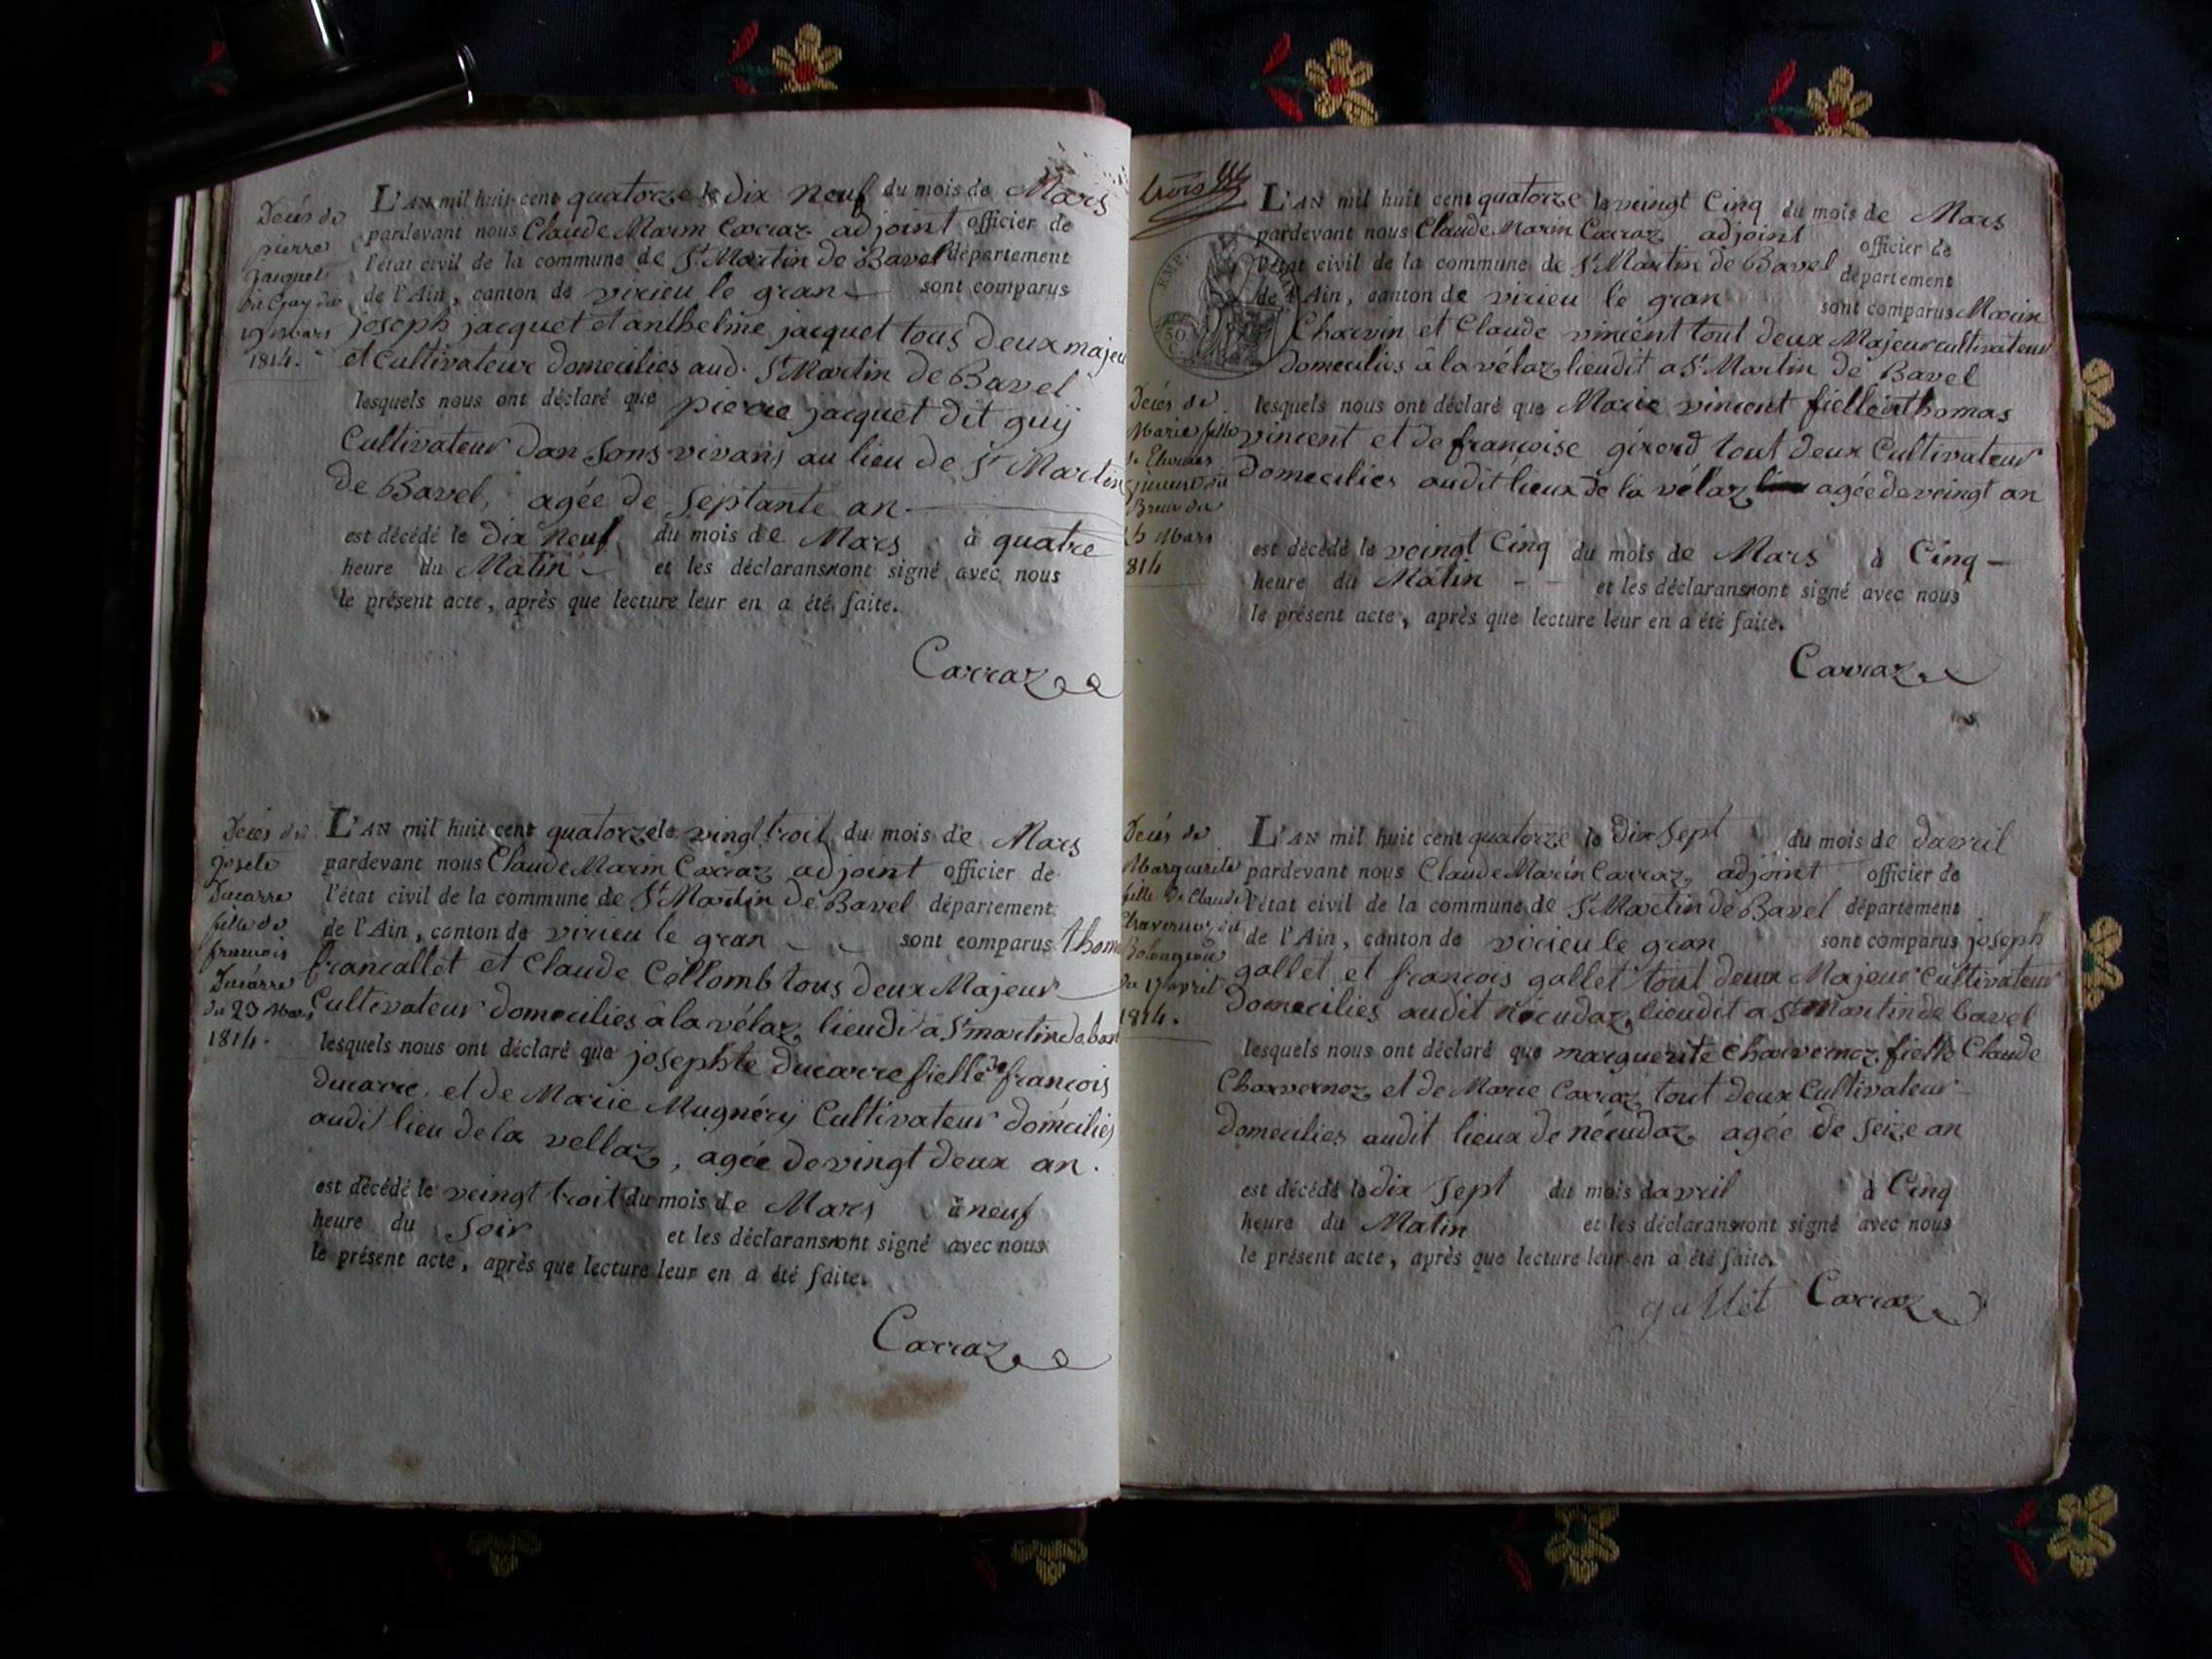 Decés de
pierre
Jacquet
dit Guy du
19 Mars
1814.
L'AN mil huit cent quatorze le dix neuf du mois de Mars
pardevant nous Claude Marin Carraz adjoint officier de
l'état civil de la commune de St Martin de Bavel département
de l'Ain, canton de virieu le gran sont comparus
joseph jacquet et anthelme jacquet tous deux majeur
et Cultivateur domecilies aud. St Martin de Bavel
lesquels nous ont déclaré que pierre jacquet dit guij
Cultivateur dan sons vivans au lieu de St Martin
de Bavel, agée de septante an
est décédé le dix neuf du mois de Mars à quatre
heure du Matin et les déclarans nont signé avec nous
le présent acte, après que lecture leur en a été faite.
Carraz
Decés de
josete
Ducarre
fille de
francois
Ducarre
du 23 Mars
1814.
L'AN mil huit cent quatorze le vingt troit du mois de Mars
pardevant nous Claude Marin Carraz adjoint officier de
l'état civil de la commune de St Martin de Bavel département
de l'Ain, canton de virieu le gran sont comparus thom
francallet et Claude Collomb tous deux Majeur
Cultivateur domecilies à la vélaz lieudi à St martin de bavel
lesquels nous ont déclaré que josephte ducarre fielle de francois
ducarre et de Marie Mugnérij Cultivateur domécilies
audit lieu de la vellaz, agée de vingt deux an.
est décédé le veingt troit du mois de Mars à neuf
heure du Soir et les déclarans nont signé avec nous
le présent acte, après que lecture leur en a été faite.
Carraz
trois
EMP.
50
C.
L'AN mil huit cent quatorze le veingt Cinq du mois de Mars
pardevant nous Claude Marin Carraz adjoint officier de
l'état civil de la commune de St Martin de Bavel département
de l'Ain, canton de virieu le gran sont comparus Marin
Charvin et Claude vincent tout deux Majeur cultivateur
domecilies à la vélaz lieudit a St Martin de Bavel
Decés de
Marie fille
de Thomas
du
25 Mars
1814
lesquels nous ont déclaré que Marie vincent fielle de thomas
vincent et de francoise girerd tout deux Cultivateur
domecilies audit lieux de la vélaz agée de veingt an
est décédé le veingt Cinq du mois de Mars à Cinq
heure du Matin et les déclarans nont signé avec nous
le présent acte, après que lecture leur en a été faite.
Carraz
Decés de
Marguerite
fille de Claude
Charvernoz dit
du 17 avril
1814.
L'AN mil huit cent quatorze le dix sept du mois de davril
pardevant nous Claude Marin Carraz adjoint officier de
l'état civil de la commune de St Martin de Bavel département
de l'Ain, canton de virieu le gran sont comparus joseph
gallet et francois gallet tout deux Majeur Cultivateur
domecilies audit nécudaz lieudit a St Martin de bavel
lesquels nous ont déclaré que marguerite Charvernoz fielle Claude
Charvernoz et de Marie Carraz tout deux Cultivateur
domecilies audit lieux de nécudaz agée de seize an
est décédé le dix sept du mois davril à Cinq
heure du Matin et les déclarans nont signé avec nous
le présent acte, après que lecture leur en a été faite.
gallet Carraz